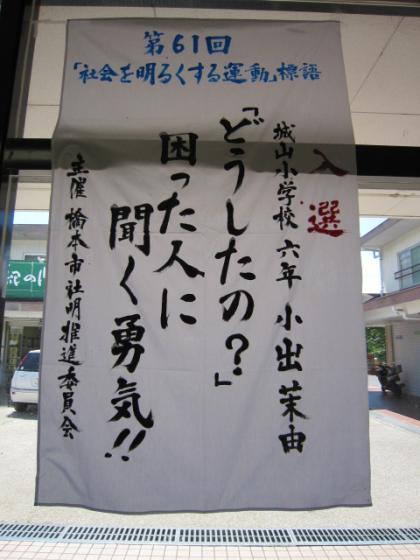 第61回
「社会を明るくする運動」標語
入選
城山小学校 六年 小出茉由
「どうしたの?」
困った人に
聞く勇気!!
主催 橋本市社明推進委員会
紀の